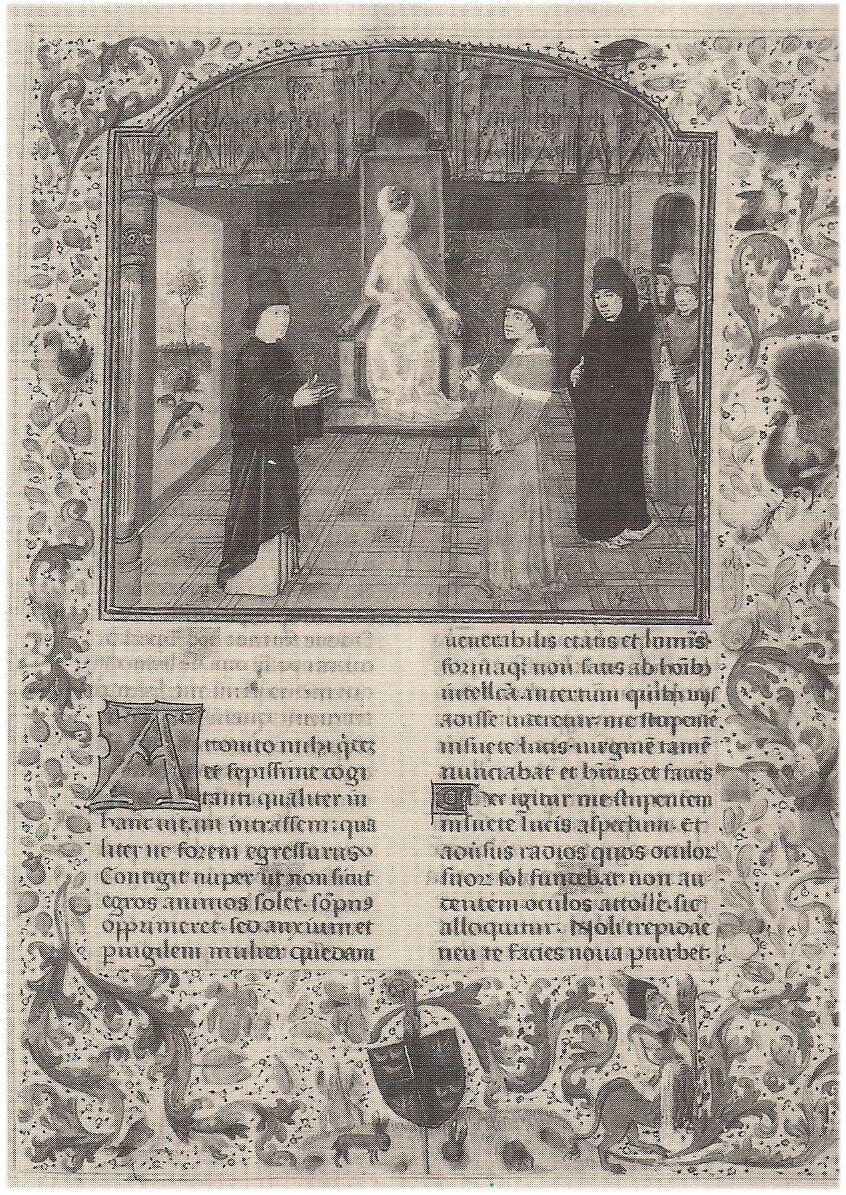 Attonito mihi q̇dē
et sepissime cogi
tanti qualiter in
hanc uitam intrassem: qua
liter ue forem egressurus
Contigit nuper ut non sicut
egros animos solet. sōpn9
opprimeret. sed anxium et
puigilem mulier quedam
īēnerabilis etatis et lumīs.
formaq; non satis ab hoīb9
intellcā. incertum quib9 uijs
adisse uideretur. me stupente.
insuete lucis. uirginē tamē
nunciabat et hītus et facies
Hec igitur me stupentem
insuete lucis aspectum. Et
adūsus radios quos oculor
suorꝝ sol fundebat non au
dentem oculos attolle. sic
alloquitur. Noli trepidaē
neu te facies noua pturbet.